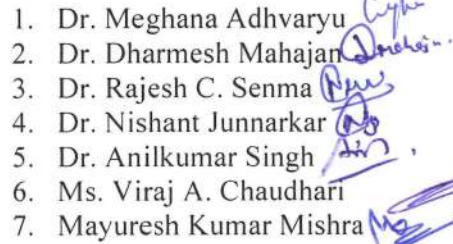 1. Dr. Meghana Adhvaryu
2. Dr. Dharmesh Mahajan
3. Dr. Rajesh C. Senma
4. Dr. Nishant Junnarkar
5. Dr. Anilkumar Singh
6. Ms. Viraj A. Chaudhari
7. Mayuresh Kumar Mishra